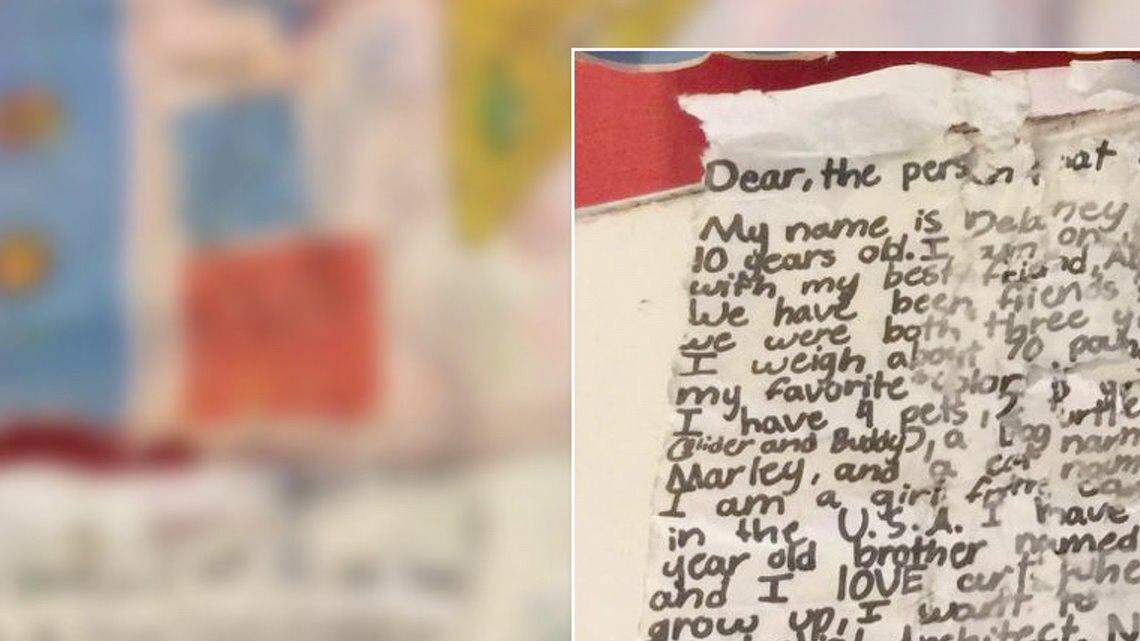 Dear, the person that
My name is Delaney
10 years old. I am on
with my best friend, A
We have been friends
we were both three y
I weigh about 70 poun
my favorite color is
I have 4 pets, 2 turtle
(Glider and Buddy), a dog nam
Marley, and a cat nam
I am a girl from Ca
in the U.S.A. I have
year old brother named
and I lOVE art. Whe
grow up, I want to